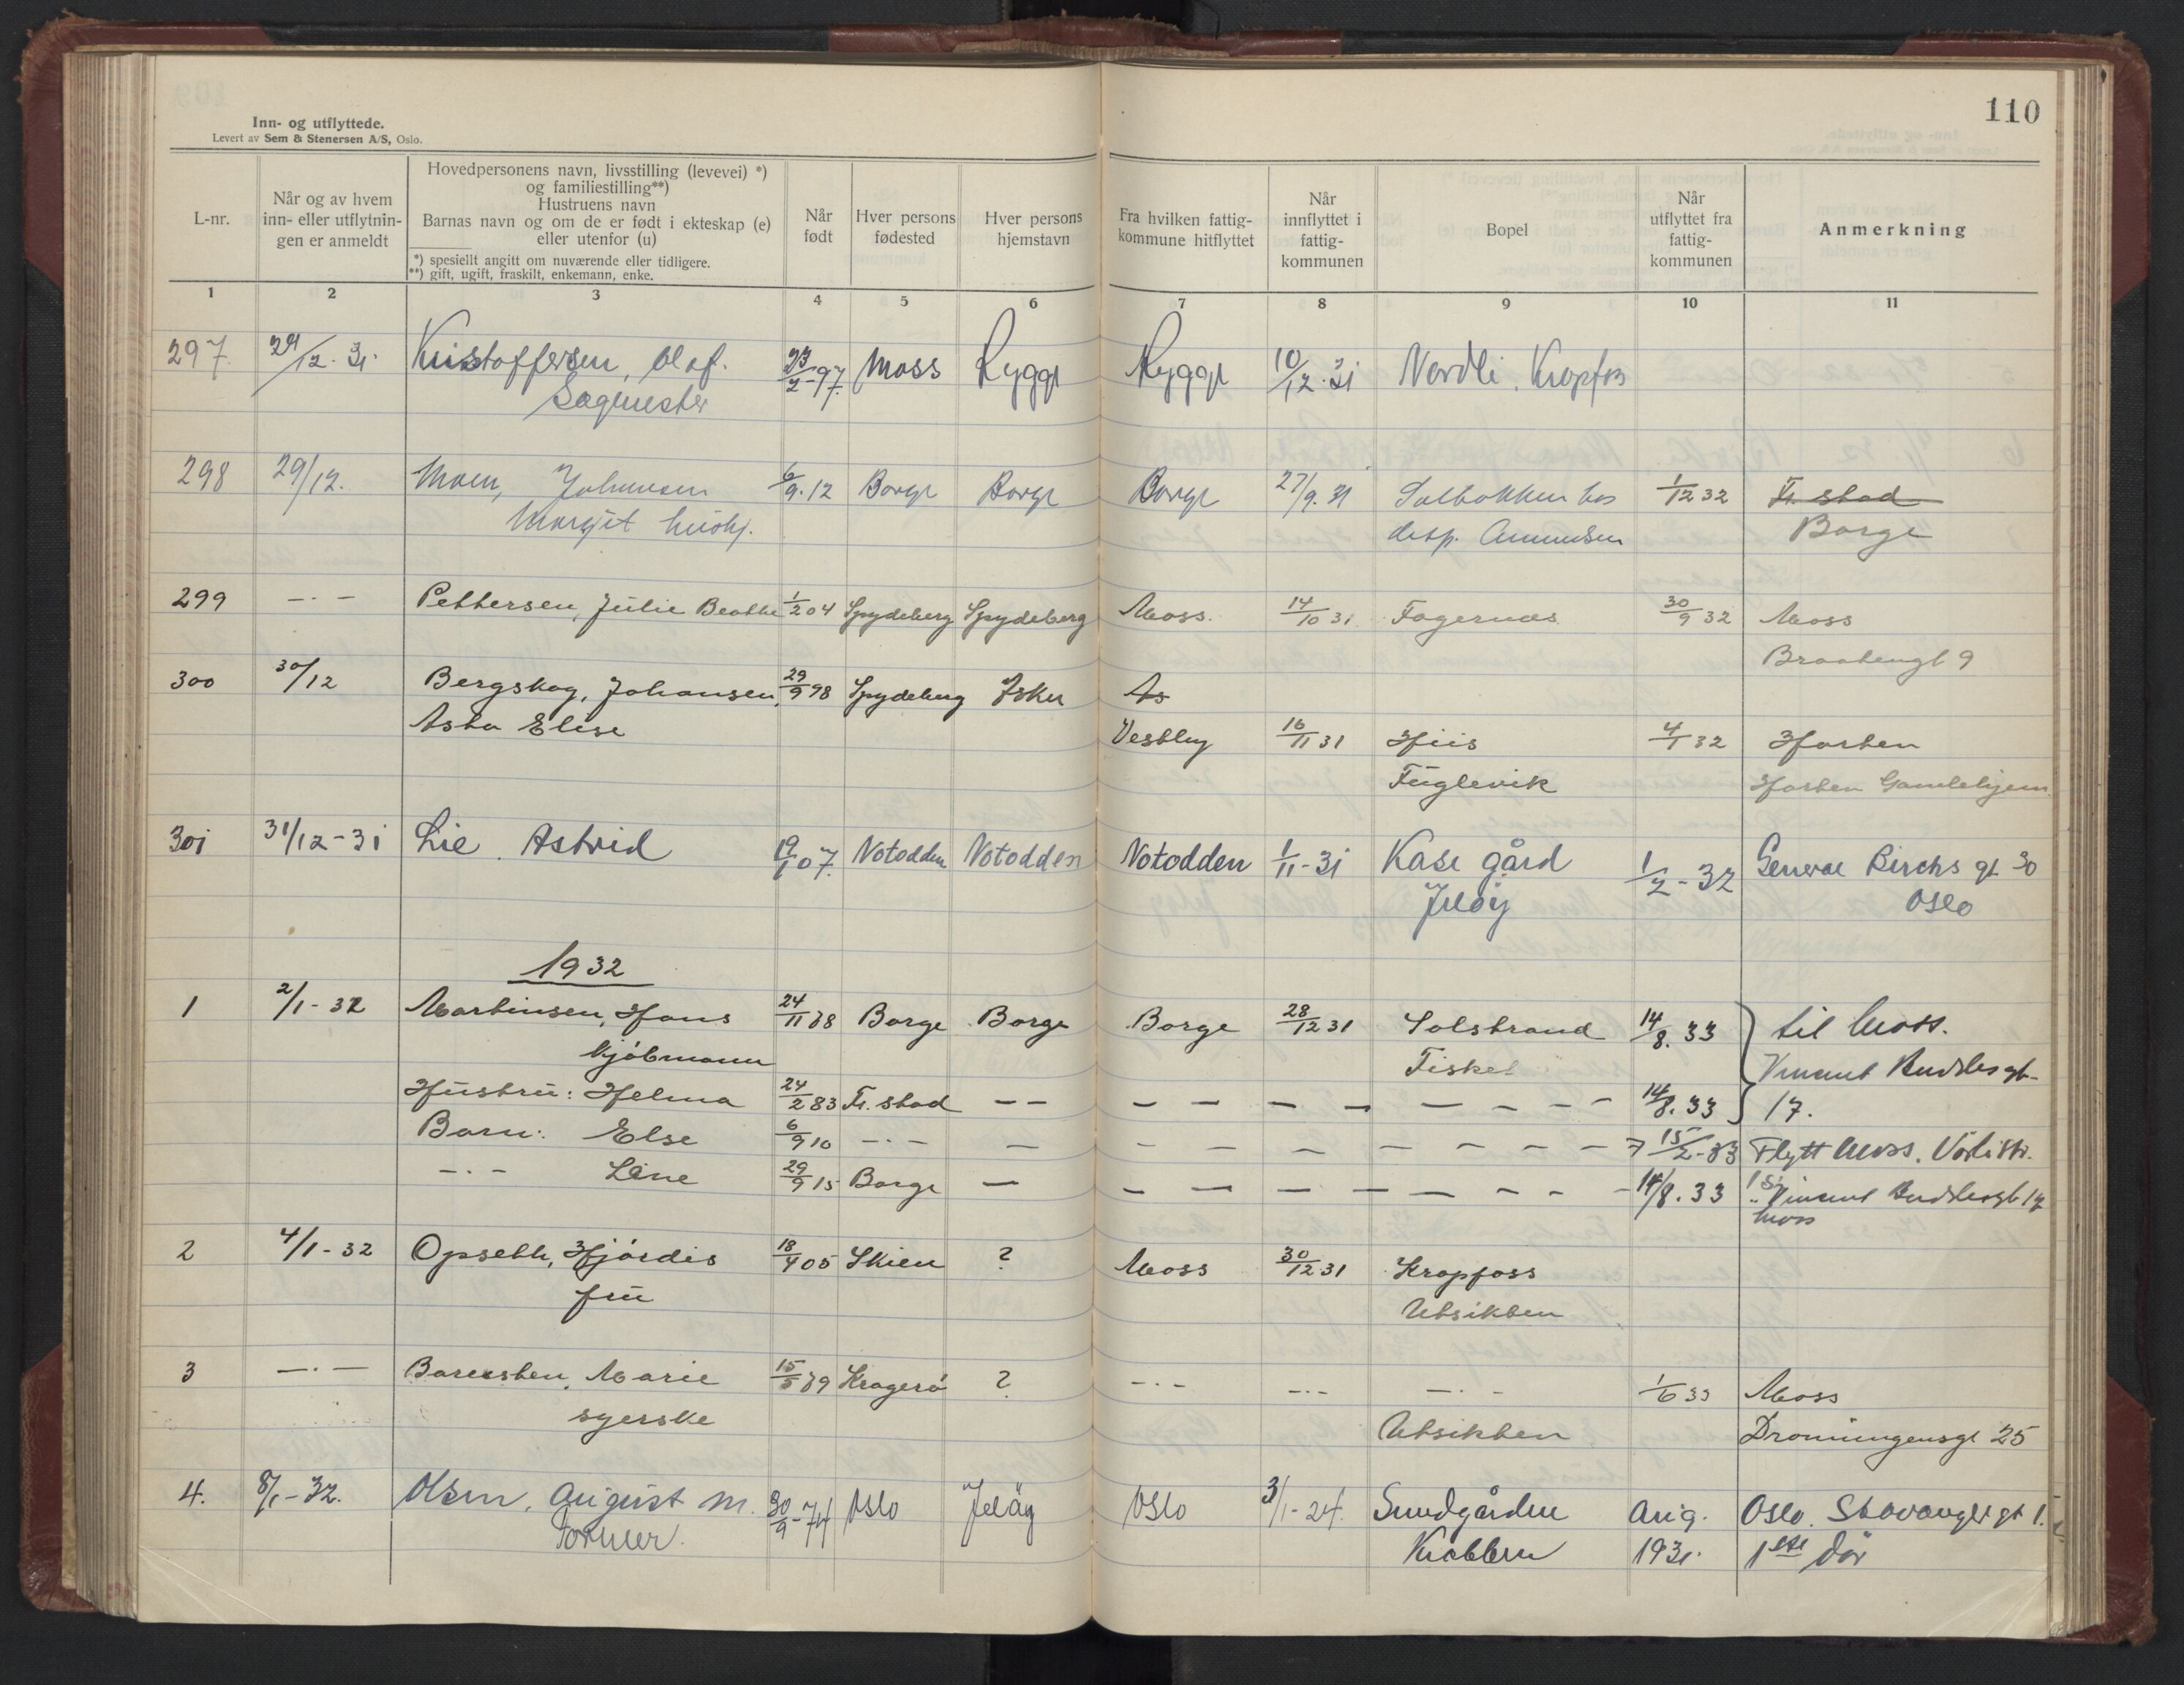 110
Inn- og utflyttede.
Levert av Sem & Stenersen A/S, Oslo.
L-nr.
Når og av hvem
inn- eller utflytnin-
gen er anmeldt
Hovedpersonens navn, livsstilling (levevei) *)
og familiestilling**)
Hustruens navn
Barnas navn og om de er født i ekteskap (e)
eller utenfor (u)
*) spesiellt angitt om nuværende eller tidligere.
**) gift, ugift, fraskilt, enkemann, enke.
Når
født
Hver persons
fødested
Hver persons
hjemstavn
Fra hvilken fattig-
kommune hitflyttet
Når
innflyttet i
fattig-
kommunen
Bopel
Når
utflyttet fra
fattig-
kommunen
Anmerkning
1 2 3 4 5 6 7 8 9 10 11
297. 29/12. 31. Kristoffersen, Olaf. 23/2-97. Moss Rygge Rygge 10/12. 31 Nordli, Kropfos
Sagmester
298 29/12. Moen, Johnnsen 6/9.12 Borge Borge Borge 27/9. 31 Solbakken hos 1/12 32 Fr. stad
Margit hush. desp. Amundsen Borge
299 -·- Pettersen, Julie Beathe 1/2 04 Spydeberg Spydeberg Moss. 14/10 31 Fagernæs 30/9 32 Moss
Braatengt 9
300 30/12 Bergskog, Johansen, 29/9 98 Spydeberg As
Asta Elise Vestby 16/11 31 Hiis 4/1 32 Horten
Fuglevik Horten Gamlehjem
301 31/12-31 Lie. Astrid 19/1 07. Notodden Notodden Notodden 1/11-31 Kase gård 1/2-32 General Birchs gt 30
Jeløy Oslo
1932
1 2/1-32 Martinsen, Hans 24/11 88 Borge Borge Borge 28/12 31 Solstrand 14/8. 33 til Moss.
Kjøbmann Fiske Vincent Buddes gt.
Hustru: Helma 24/2 83 Fr. stad -- - - - - - - - - 14/8. 33 17.
Barn: Else 6/9 10 -·- - - - - - - - - - 15/2-33 Flytt Moss.
-·- Line 29/9 15 Borge - - - - - - - - - 14/8. 33 Vincent Buddesgt 17
Moss
2 4/1-32 Opseth, Hjördis 18/4 05 Skien ? Moss 30/12 31 Kropfoss
fru Utsikten
3 -·- Marie 15/5 89 Kragerö ? -·- -·- -·- 1/6 33 Moss
syerske Utsikten Dronningensgt 25
4. 8/1-32. Olsen, August M. 30/9-74 Oslo Jeløy Oslo 3/1-24. Sundgården Aug. Oslo. Stavanger gt 1.
Former. Krabben 1931. 1ste dör